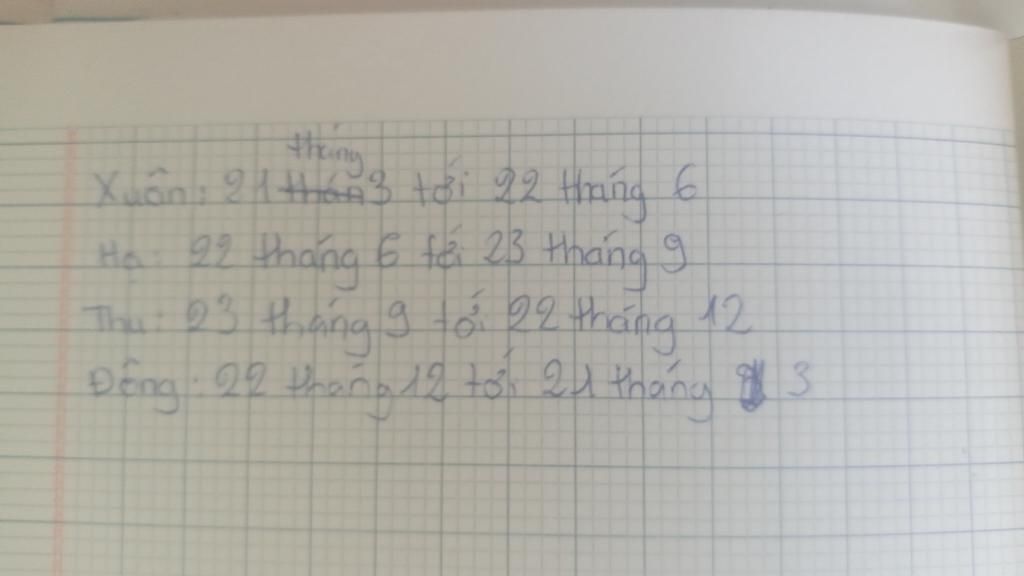 Xuân: 21 tháng 3 tới 22 tháng 6
Hạ: 22 tháng 6 tới 23 tháng 9
Thu: 23 tháng 9 tới 22 tháng 12
Đông: 22 tháng 12 tới 21 tháng 3